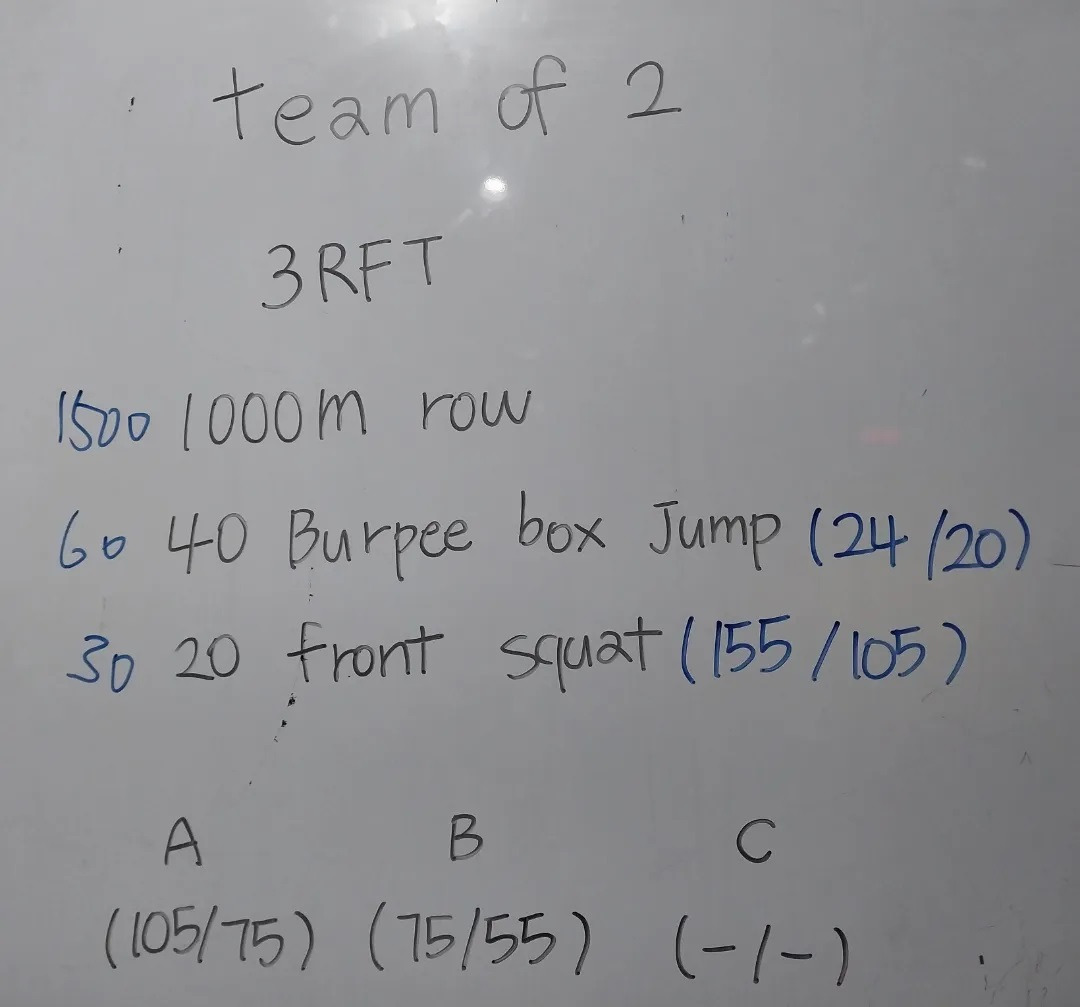 team of 2
3RFT
1500 1000m row
60 40 Burpee box Jump (24/20)
30 20 front squat (155/105)
A B C
(105/75) (75/55) (-/-)